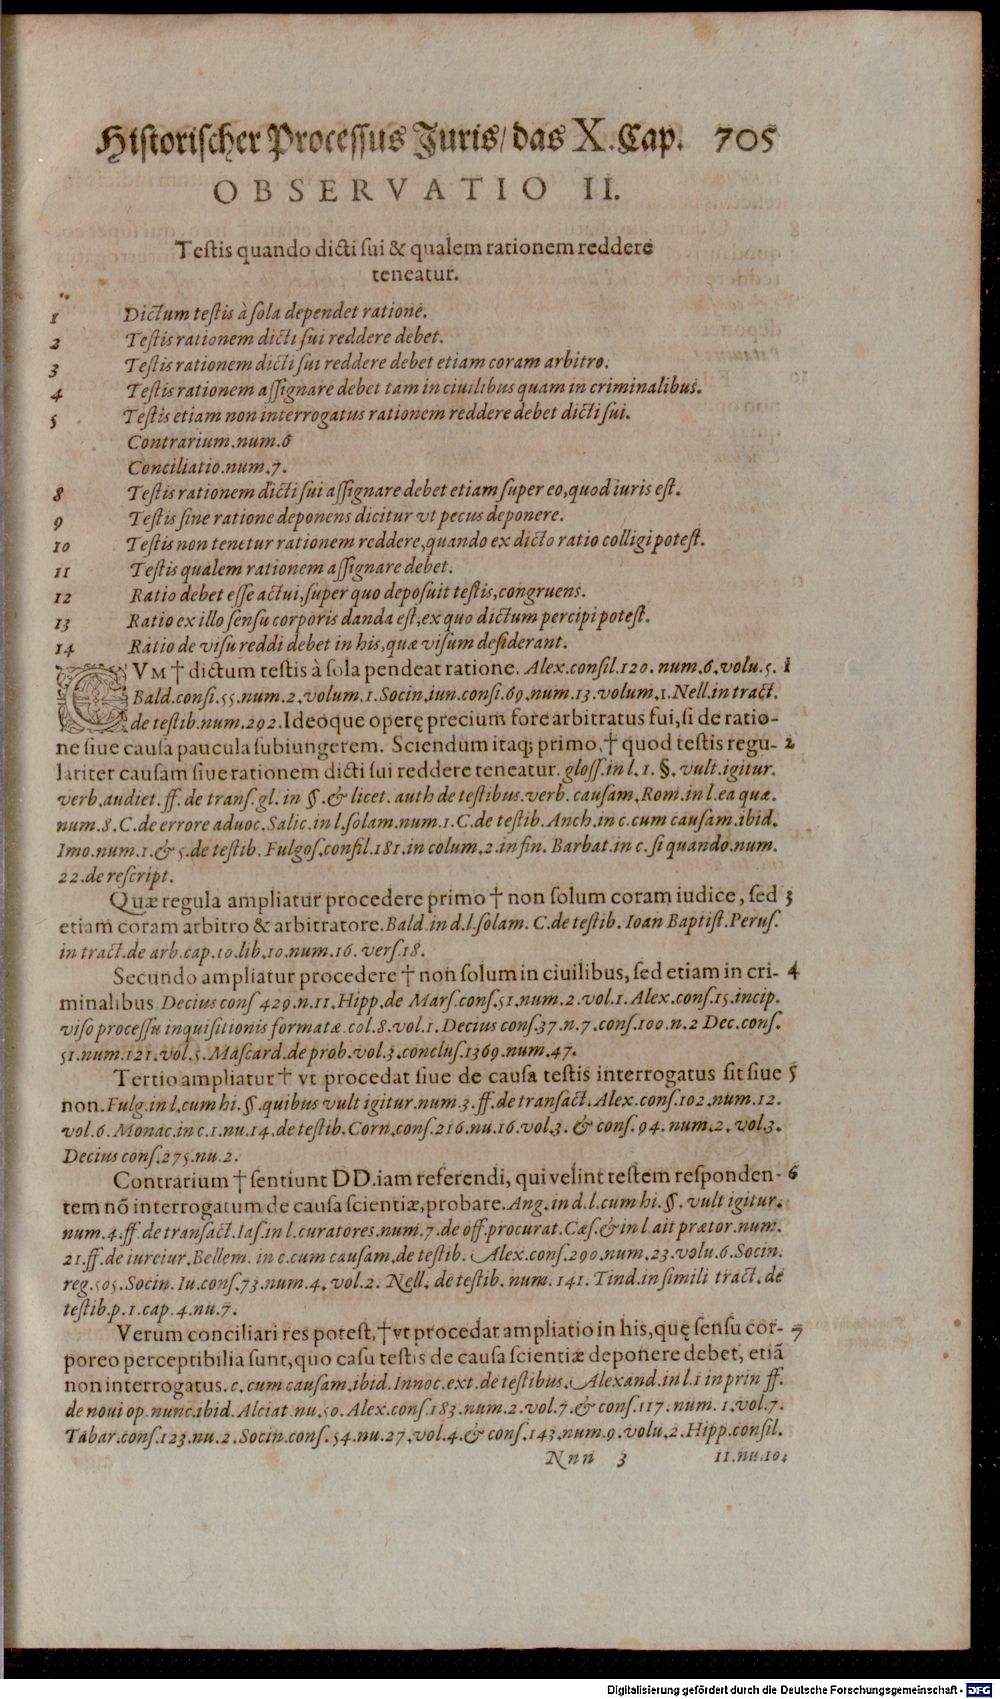 Historischer Processus Juris/ das X. Cap. 705
OBSERVATIO II.
Testis quando dicti sui & qualem rationem reddere
teneatur.
1 Dictum testis à sola dependet ratione.
2 Testis rationem dicti sui reddere debet.
3 Testis rationem dicti sui reddere debet etiam coram arbitro.
4 Testis rationem assignare debet tam in ciuilibus quam in criminalibus.
5 Testis etiam non interrogatus rationem reddere debet dicti sui.
Contrarium.num.6
Conciliatio.num.7.
8 Testis rationem dicti sui assignare debet etiam super eo,quod iuris est.
9 Testis sine ratione deponens dicitur vt pecus deponere.
10 Testis non tenetur rationem reddere,quando ex dicto ratio colligi potest.
11 Testis qualem rationem assignare debet.
12 Ratio debet esse actui,super quo deposuit testis,congruens.
13 Ratio ex illo sensu corporis danda est,ex quo dictum percipi potest.
14 Ratio de visu reddi debet in his,quæ visum desiderant.
CVM † dictum testis à sola pendeat ratione. Alex.consil.120. num.6.volu.5. 1
Bald.consi.55.num.2.volum.1.Socin.iun.consi.69.num.13.volum.1.Nell.in tract.
de testib.num.292.Ideoque operę precium fore arbitratus fui,si de ratio-
ne siue causa paucula subiungerem. Sciendum itaq; primo,† quod testis regu- 2
lariter causam siue rationem dicti sui reddere teneatur. gloss.in l.1.§.vult.igitur.
verb.audiet.ff.de trans.gl. in §.& licet. auth de testibus.verb. causam.Rom.in l.ea quæ.
num.8.C.de errore aduoc.Salic.in l.solam.num.1.C.de testib.Anch.in c.cum causam.ibid.
Imo.num.1.& 5.de testib.Fulgos.consil.181.in colum.2.in fin. Barbat.in c.si quando.num.
22.de rescript.
Quæ regula ampliatur procedere primo † non solum coram iudice, sed 3
etiam coram arbitro & arbitratore.Bald.in d.l.solam. C.de testib. Ioan Baptist.Perus.
in tract.de arb.cap.10.lib.10.num.16. vers.18.
Secundo ampliatur procedere † non solum in ciuilibus, sed etiam in cri- 4
minalibus Decius cons 429.n.11.Hipp.de Mars.cons.51.num.2.vol.1.Alex.cons.15.incip.
viso processu inquisitionis formatæ.col.8.vol.1.Decius cons.37.n.7.cons.100.n.2 Dec.cons.
51.num.121.vol.5.Mascard.de prob.vol.3.conclus.1369.num.47.
Tertio ampliatur † vt procedat siue de causa testis interrogatus sit siue 5
non.Fulg.in l.cum hi.§.quibus vult igitur.num.3.ff.de transact.Alex.cons.102.num.12.
vol.6.Monac.in c.1.nu.14.de testib.Corn.cons.216.nu.16.vol.3. & cons.94.num.2.vol.3.
Decius cons.275.nu.2.
Contrarium † sentiunt DD.iam referendi, qui velint testem responden- 6
tem nõ interrogatum de causa scientiæ,probare.Ang.in d.l.cum hi.§.vult igitur.
num.4.ff.de transact.Ias.in l.curatores.num.7.de off.procurat.Cæs.& in l.ait prætor.num.
21.ff.de iureiur.Bellem. in c.cum causam.de testib. Alex.cons.290.num.23.volu.6.Socin.
reg.505.Socin.Iu.cons.73.num.4.vol.2. Nell. de testib.num.141.Tind.in simili tract.de
testib.p.1.cap.4.nu.7.
Verum conciliari res potest,† vt procedat ampliatio in his,quę sensu cor- 7
poreo perceptibilia sunt,quo casu testis de causa scientiæ deponere debet, etiã
non interrogatus.c.cum causam.ibid.Innoc.ext.de testibus.Alexand.in l.1 in prin ff.
de noui op.nunc.ibid.Alciat.nu.50.Alex.cons.183.num.2.vol.7.& cons.117.num.1.vol.7.
Tabar.cons.123.nu.2.Socin.cons.54.nu.27.vol.4.& cons.143.num.9.volu.2.Hipp.consil.
Nnn 3 11.nu.104
Digitalisierung gefördert durch die Deutsche Forschungsgemeinschaft - DFG